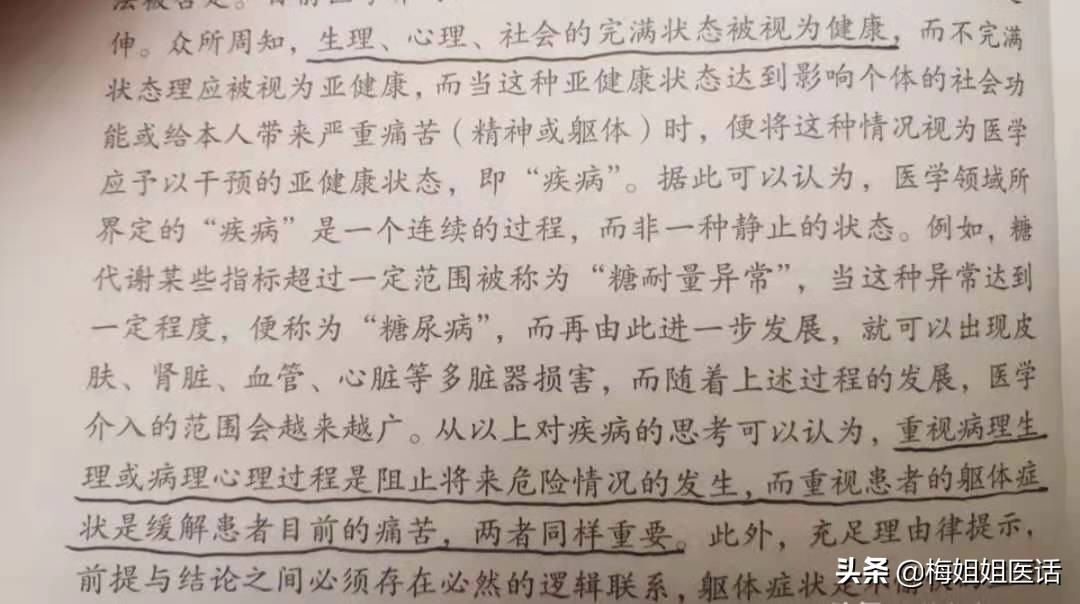 伸。众所周知，生理、心理、社会的完满状态被视为健康，而不完满
状态理应被视为亚健康，而当这种亚健康状态达到影响个体的社会功
能或给本人带来严重痛苦（精神或躯体）时，便将这种情况视为医学
应予以干预的亚健康状态，即“疾病”。据此可以认为，医学领域所
界定的“疾病”是一个连续的过程，而非一种静止的状态。例如，糖
代谢某些指标超过一定范围被称为“糖耐量异常”，当这种异常达到
一定程度，便称为“糖尿病”，而再由此进一步发展，就可以出现皮
肤、肾脏、血管、心脏等多脏器损害，而随着上述过程的发展，医学
介入的范围会越来越广。从以上对疾病的思考可以认为，重视病理生
理或病理心理过程是阻止将来危险情况的发生，而重视患者的躯体症
状是缓解患者目前的痛苦，两者同样重要。此外，充足理由律提示，
前提与结论之间必须存在必然的逻辑联系，躯体症状是
头条 @梅姐姐医话